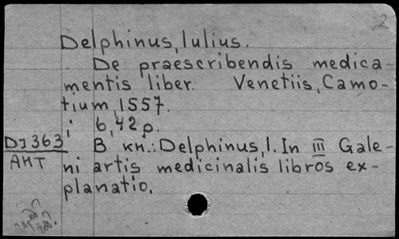 2
Delphinus, Iulius.
De praescribendis medica-
mentis liber. Venetiis, Camo-
tium, 1557.
; 6,42 p.
DJ363 В кн.: Delphinus, I. In III Gale-
AHT ni artis medicinalis libros ex-
planatio.